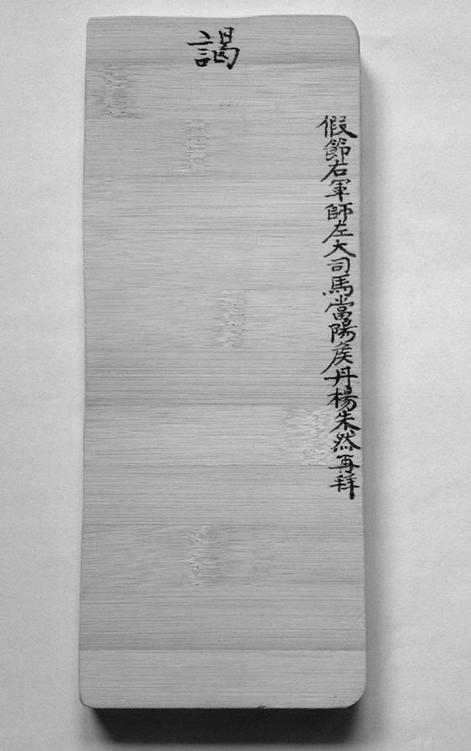 謁
假節右軍師左大司馬當陽矦丹楊朱然再拜